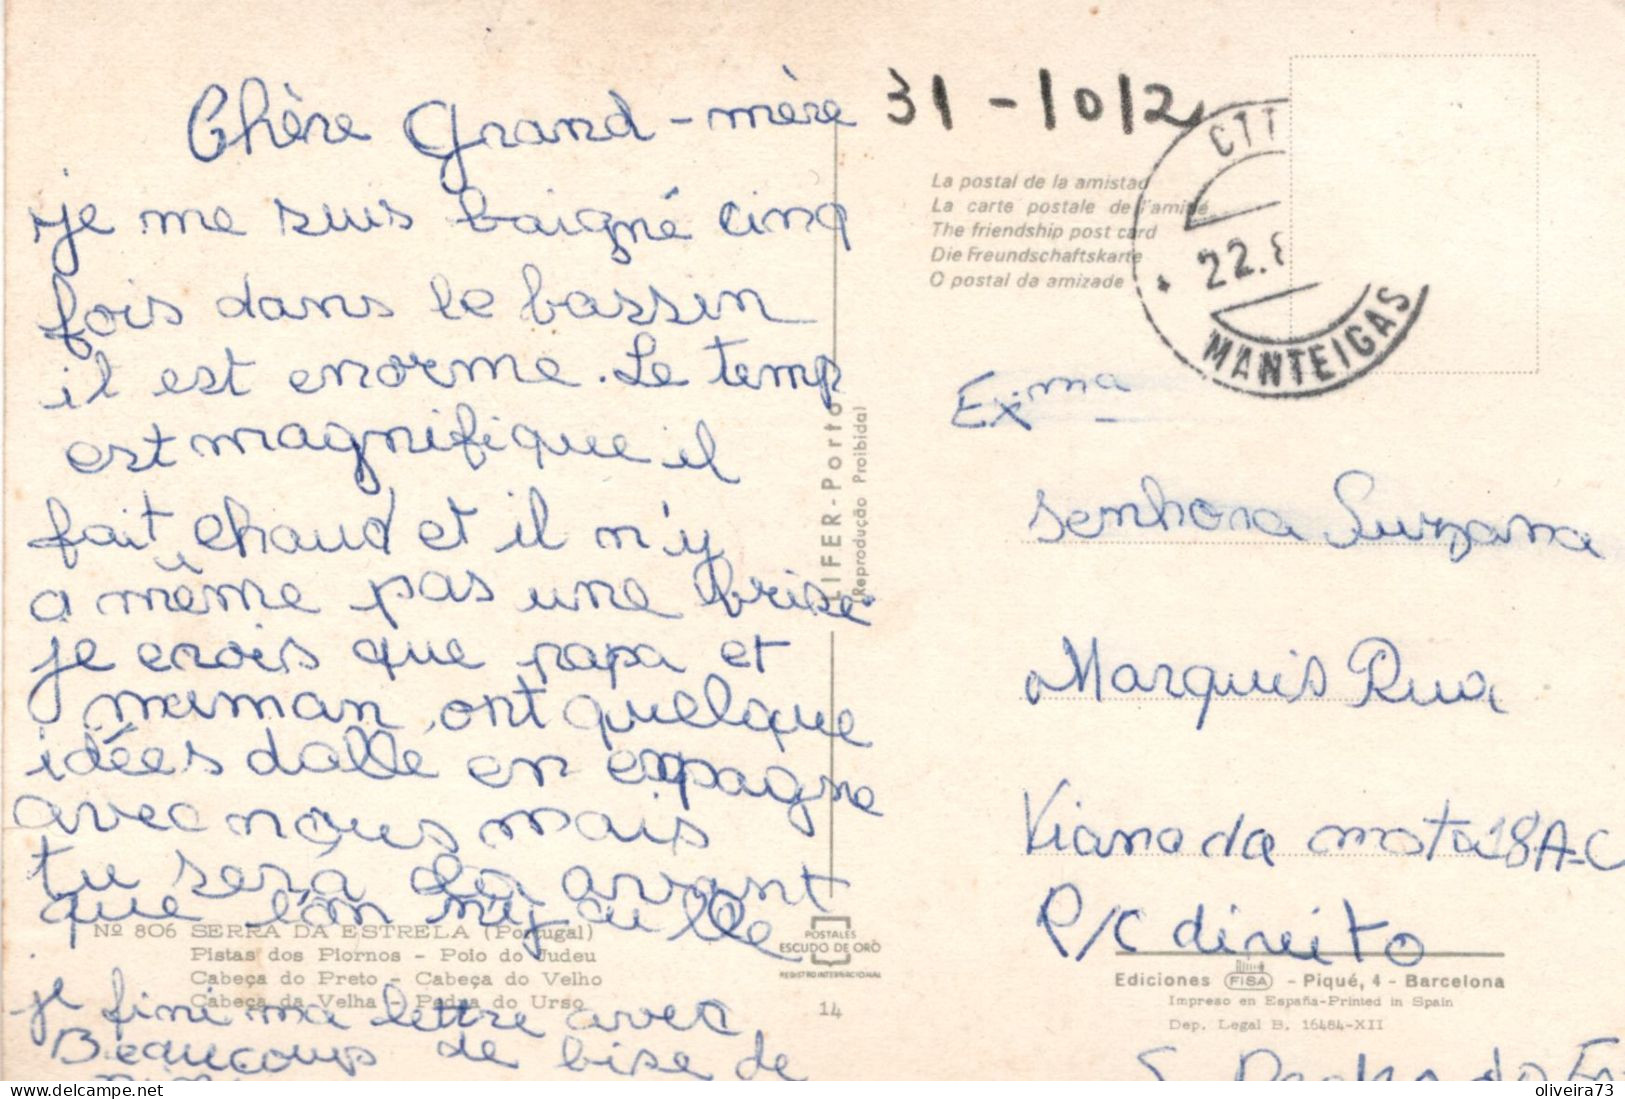 Chère Grand-mère
je me suis baigné cinq
fois dans le bassin
il est enorme. Le temp
est magnifique il
fait chaud et il n'y
a même pas une brise
je crois que papa et
maman ont quelque
idées dallé en espagne
avec nous mais
tu sera là avant
que l'on n'y aille
je fini ma lettre avec
Beaucoups de bise de
31-1012
La postal de la amistad
La carte postale de l'amitié
The friendship post card
Die Freundschaftskarte
O postal da amizade
CTT
22.8
MANTEIGAS
LIFER-Porto
(Reprodução Proibida)
Exma
Senhora Surzana
Marquis Rua
Viana da mota 18A-C
R/C direito
S. Pedro do Es
Nº 806 SERRA DA ESTRELA (Portugal)
Pistas dos Piornos - Poio do Judeu
Cabeça do Preto - Cabeça do Velho
Cabeça da Velha - Pedra do Urso
POSTALES
ESCUDO DE ORO
REGISTRO INTERNACIONAL
14
Ediciones FISA - Piqué, 4 - Barcelona
Impreso en España-Printed in Spain
Dep. Legal B. 16484-XII
delcampe.net
oliveira73